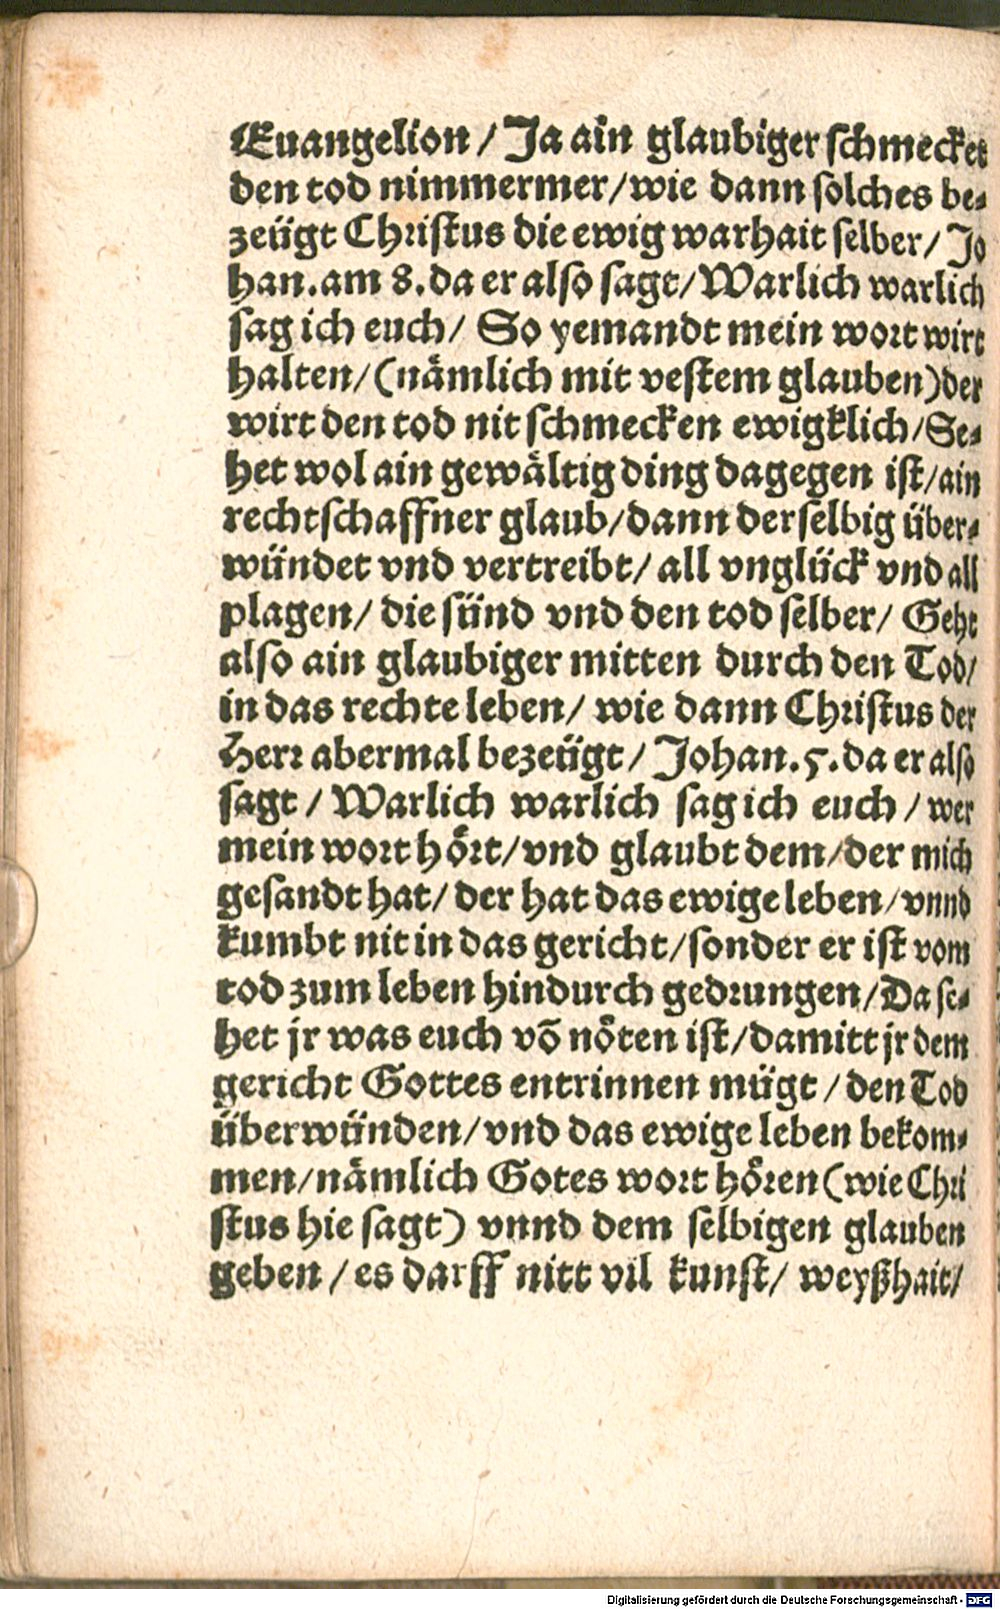 Euangelion / Ja ain glaubiger schmecket
den tod nimmermer/wie dann solches be⸗
zeügt Christus die ewig warhait selber/ Jo
han.am 8.da er also sagt/Warlich warlich
sag ich euch/ So yemandt mein wort wirt
halten/(nämlich mit vestem glauben)der
wirt den tod nit schmecken ewigklich/Se⸗
het wol ain gewältig ding dagegen ist/ain
rechtschaffner glaub/dann derselbig über⸗
wündet vnd vertreibt/ all vnglück vnd all
plagen/ die sünd vnd den tod selber/ Geht
also ain glaubiger mitten durch den Tod/
in das rechte leben/ wie dann Christus der
Herr abermal bezeügt/ Johan.5.da er also
sagt / Warlich warlich sag ich euch / wer
mein wort hört/vnd glaubt dem/der mich
gesandt hat/ der hat das ewige leben/vnnd
kumbt nit in das gericht/sonder er ist vom
tod zum leben hindurch gedrungen/Da se⸗
het jr was euch võ nöten ist/damitt jr dem
gericht Gottes entrinnen mügt / den Tod
überwünden/vnd das ewige leben bekom⸗
men/nämlich Gotes wort hören(wie Chri
stus hie sagt) vnnd dem selbigen glauben
geben / es darff nitt vil kunst/ weyßhait/
Digitalisierung gefördert durch die Deutsche Forschungsgemeinschaft - DFG